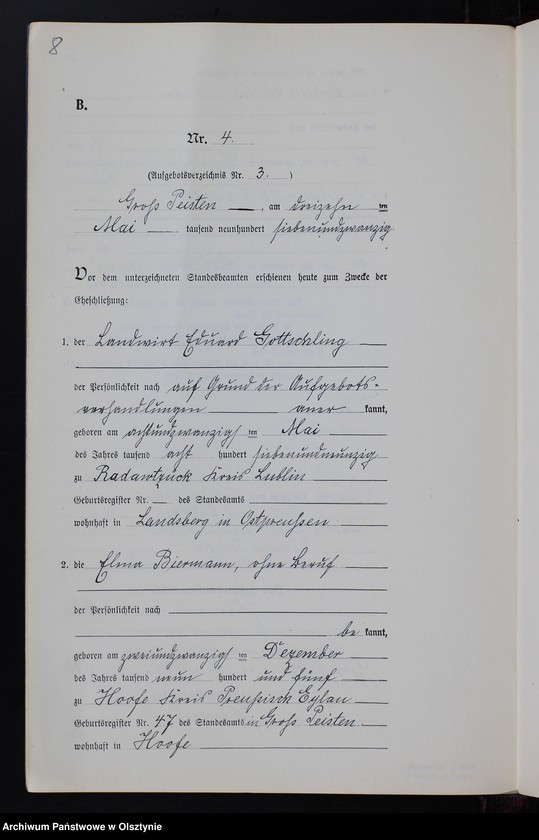 8
B.
Nr. 4.
(Aufgebotsverzeichnis Nr. 3. )
Groß Peisten —, am dreizehn ten
Mai — tausend neunhundert siebenundzwanzig.
Vor dem unterzeichneten Standesbeamten erschienen heute zum Zwecke der
Eheschließung:
1. der Landwirt Eduard Gottschling —
der Persönlichkeit nach auf Grund der Aufgebots-
verhandlungen — aner kannt,
geboren am achtundzwanzigs ten Mai —
des Jahres tausend acht hundert siebenundneunzig
zu Kreis Lublin —
Geburtsregister Nr. — des Standesamts
wohnhaft in Landsberg in Ostpreussen —
2. die Elma Biermann, ohne Beruf —
der Persönlichkeit nach
be kannt,
geboren am zweiundzwanzigs ten Dezember —
des Jahres tausend neun hundert und fünf —
zu Hoofe Kreis Preußisch Eylau —
Geburtsregister Nr. 47 des Standesamts in Groß Peisten —
wohnhaft in Hoofe —
Archiwum Państwowe w Olsztynie